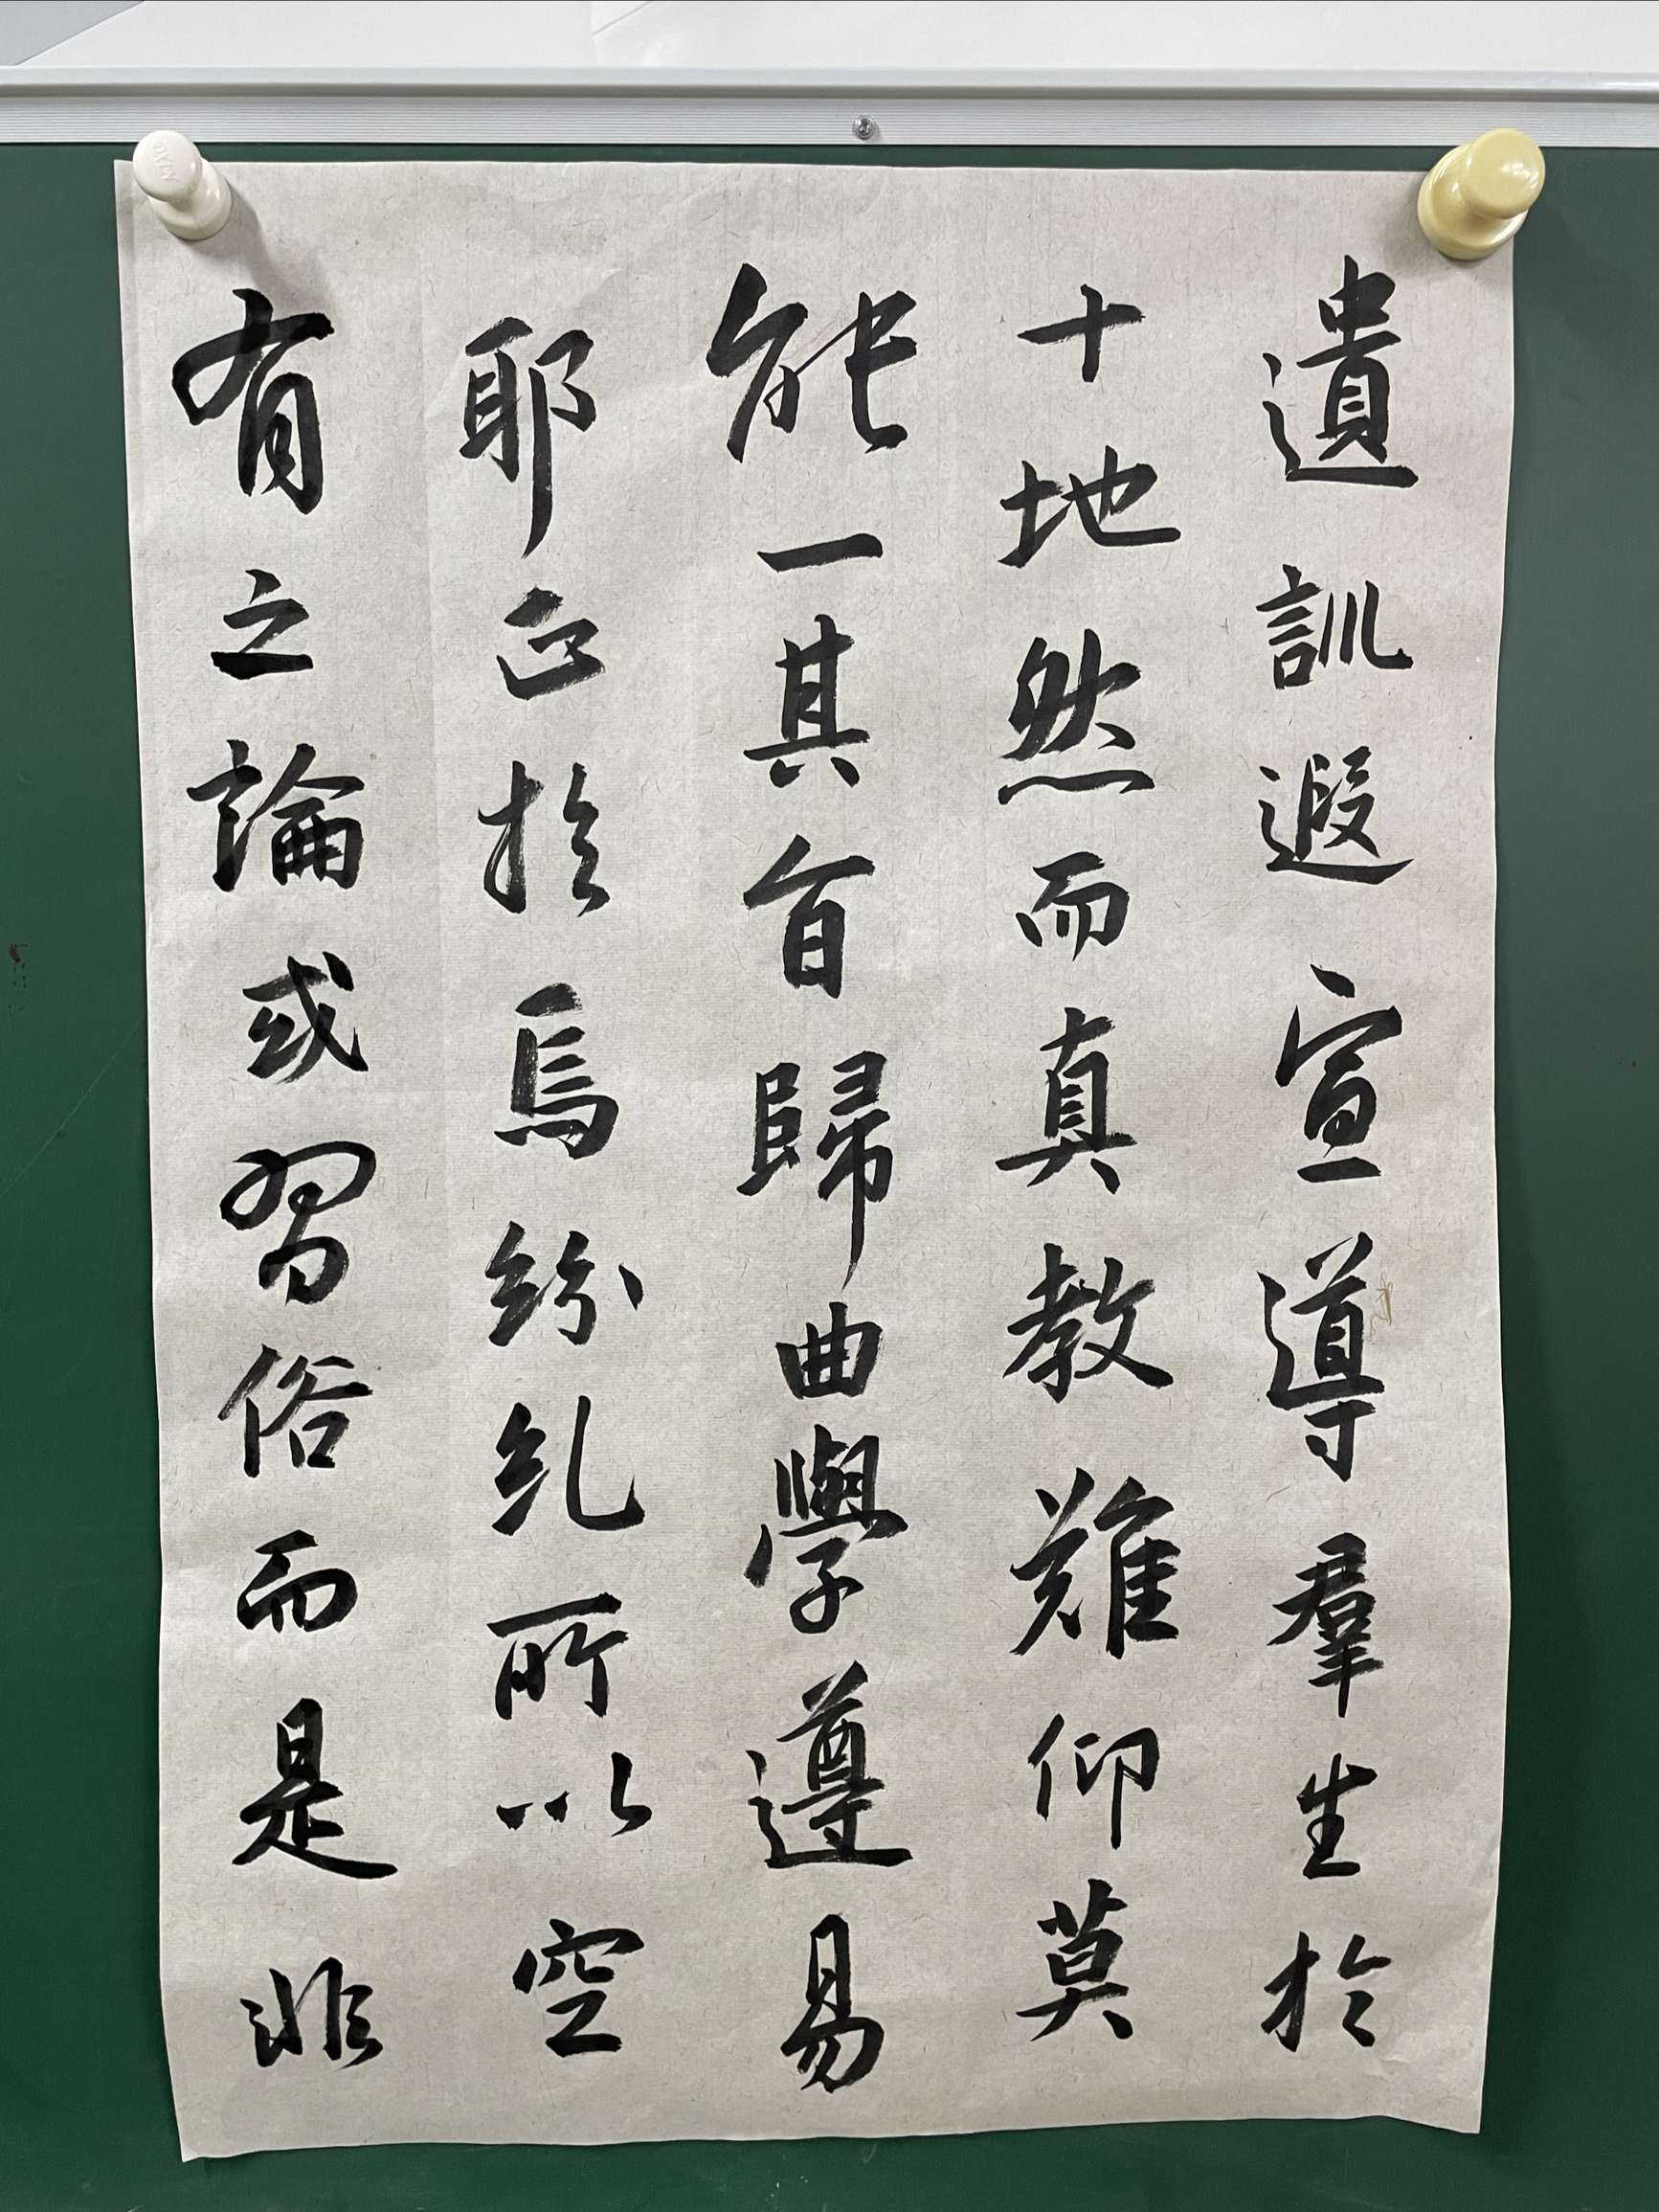 遺訓遐宣導羣生於
十地然而真教難仰莫
能一其旨歸曲學遵易
耶正於焉紛糺所以空
有之論或習俗而是非